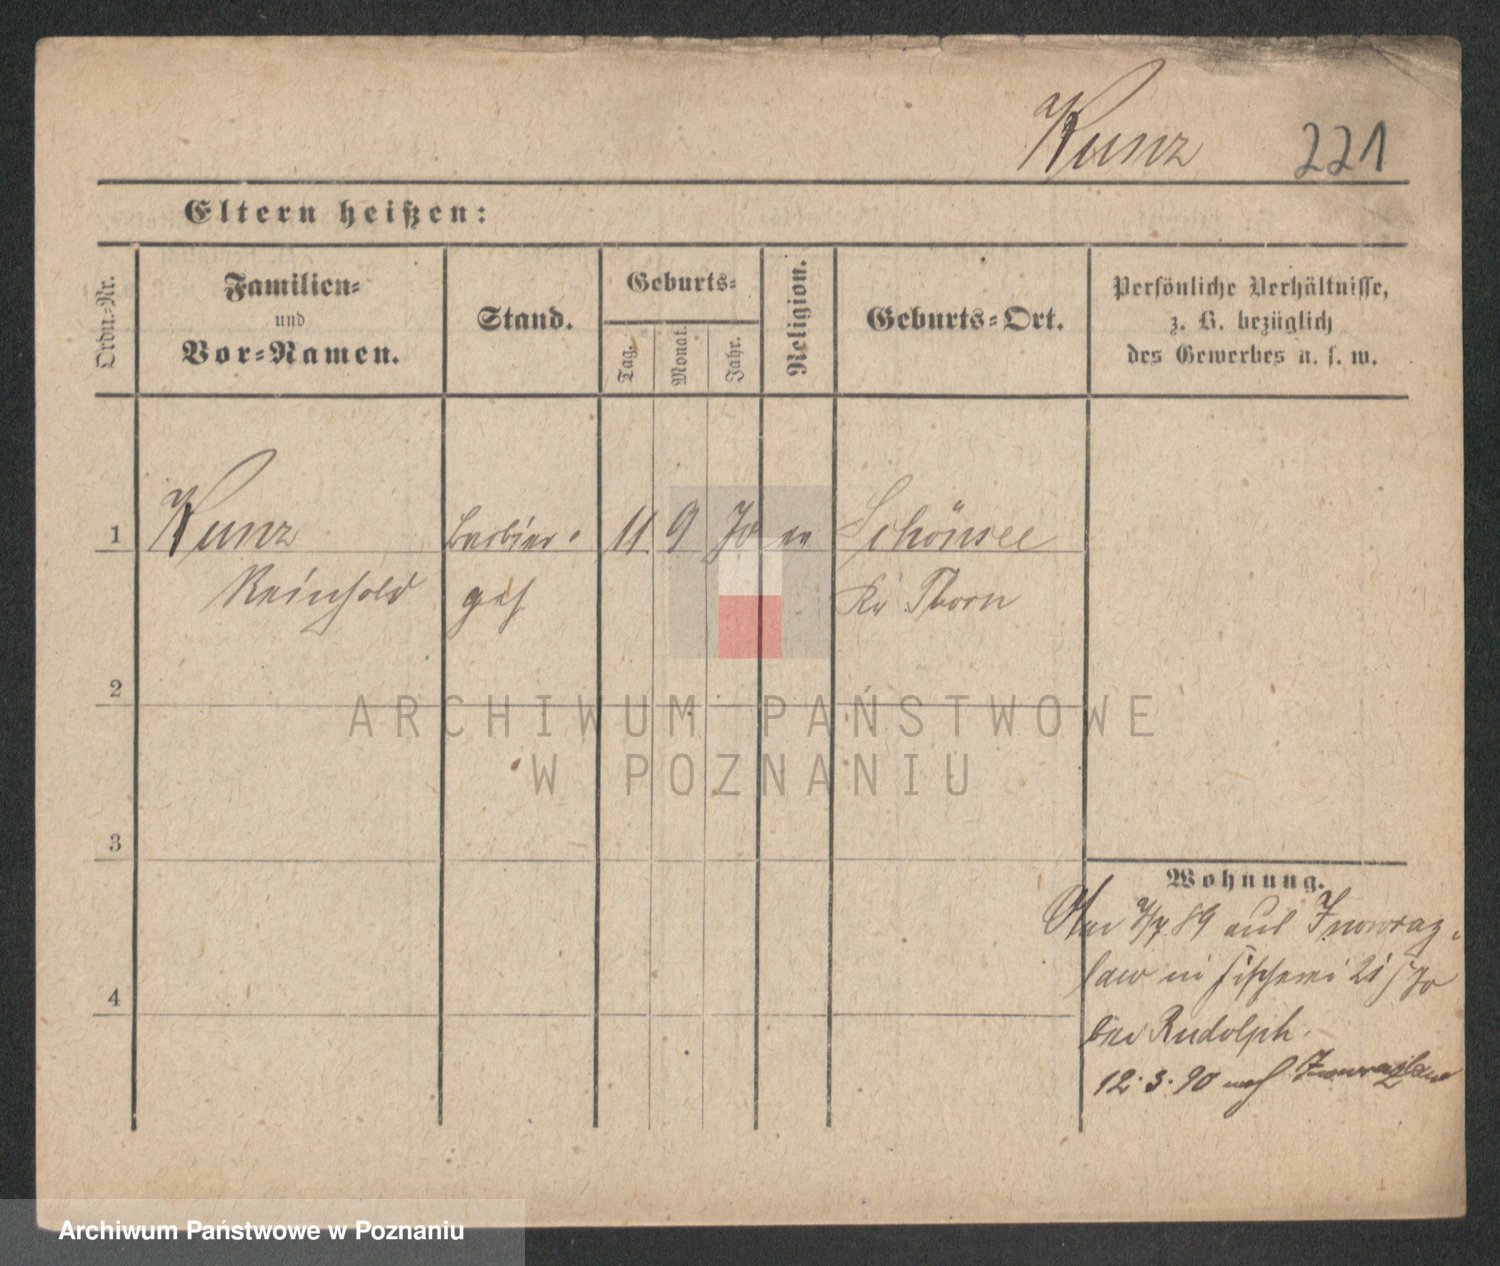 Kunz 221
Eltern heißen:
Ordn.-Nr.
Familien-
und
Vor-Namen.
Stand.
Geburts-
Tag.
Monat.
Jahr.
Religion.
Geburts-Ort.
Persönliche Verhältnisse,
z. B. bezüglich
des Gewerbes u. s. w.
1 Kunz Barbier- 11 9 70 ev Schönsee
Reinhold geh Kr Thorn
2
ARCHIWUM PAŃSTWOWE
W POZNANIU
3
Wohnung.
89 aus Inowraz-
law in Fischerei 21
bei Rudolph.
4
12.3.90 nach Inowrazlaw
Archiwum Państwowe w Poznaniu